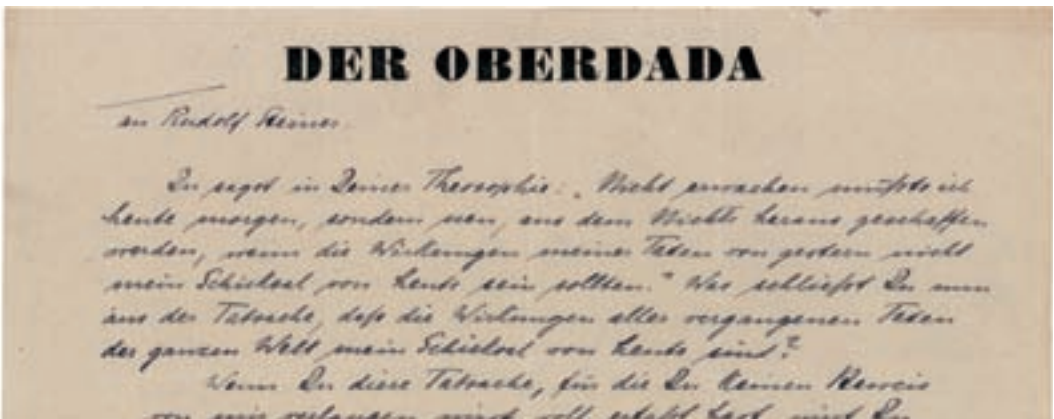 DER OBERDADA
an Rudolf Steiner.
Du sagst in Deiner Theosophie: „Nicht erwachen müßte ich
heute morgen, sondern neu, aus dem Nichts heraus geschaffen
werden, wenn die Wirkungen meiner Taten von gestern nicht
mein Schicksal von heute sein sollten." Was schließt Du nun
aus der Tatsache, daß die Wirkungen aller vergangenen Taten
der ganzen Welt mein Schicksal von heute sind?
Wenn Du diese Tatsache, für die Du keinen Beweis
von mir verlangen wirst, voll erfaßt hast, wirst Du